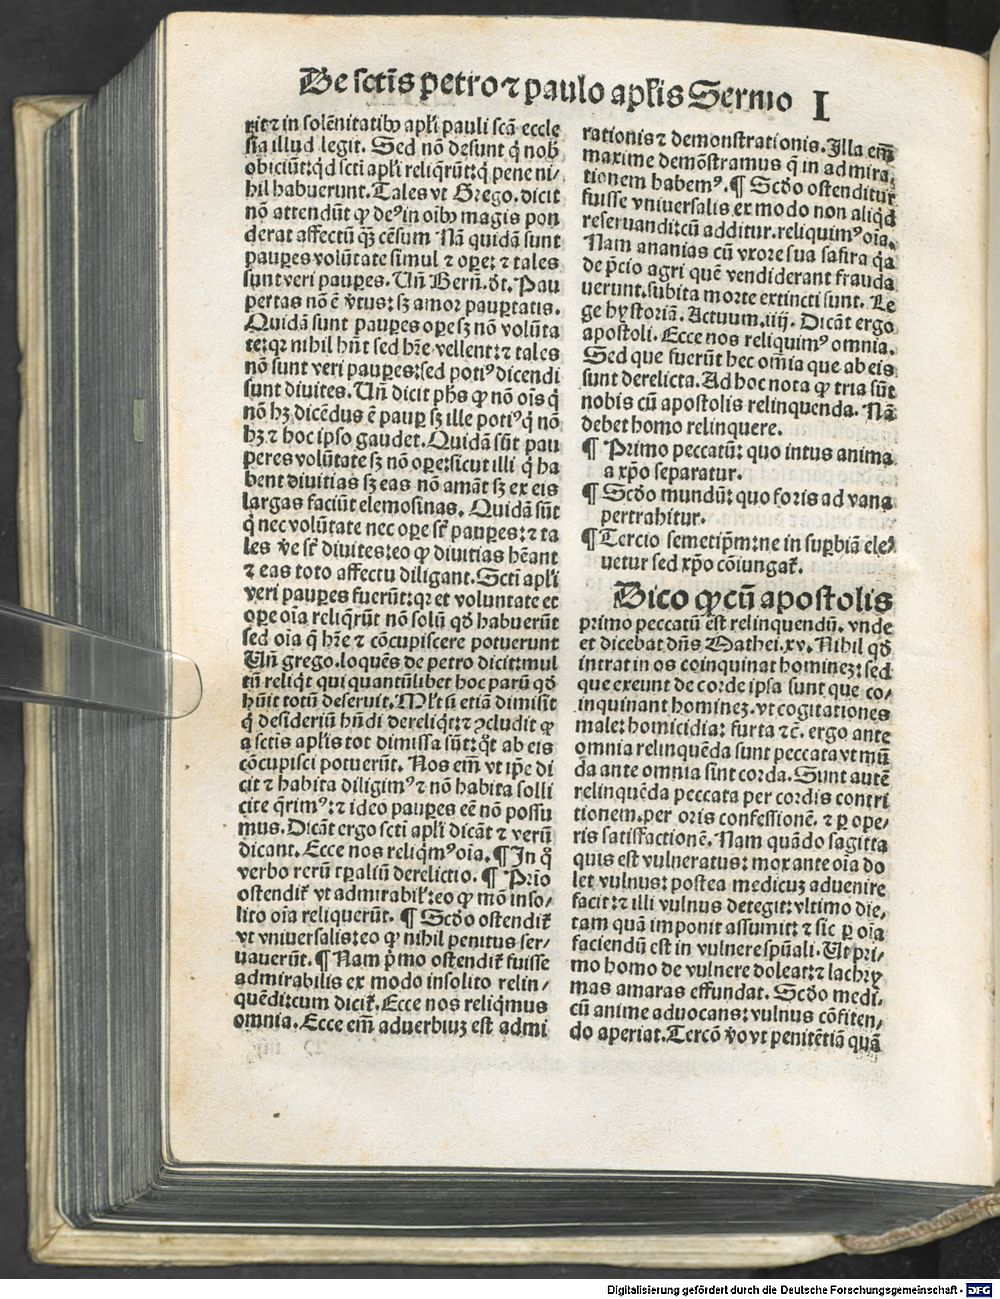 De sctis petro ⁊ paulo aplis Sermo I
rit⁊ in solẽnitatibꝰ apl'i pauli scã eccle
sia illud legit. Sed nõ desunt q̃ nob̃
obiiciũt: qd̃ scti apl'i reliq̃rũt: q̃ pene ni⸗
hil habuerunt. Tales vt Grego. dicit
nõ attendũt ꝙ deꝰ in oĩbꝰ magis pon
derat affectũ q̃ꝫ cẽsum Nã quidã sunt
paupes volũtate simul ⁊ ope: ⁊ tales
sunt veri paupes. Uñ Bern̄. dt̃. Pau
pertas nõ ẽ v̄tus: sꝫ amor paupertatis.
Quidã sunt paupes ope sꝫ nõ volũta
te: qꝛ nihil hñt sed hr̃e vellent: ⁊ tales
nõ sunt veri paupes: sed potiꝰ dicendi
sunt diuites. Uñ dicit ph̃s ꝙ nõ oĩs q̃
nõ hꝫ dicẽdus ẽ paup sꝫ ille potiꝰ q̃ nõ
hꝫ ⁊ hoc ipso gaudet. Quidã sũt pau
peres volũtate sꝫ nõ ope: sicut illi q̃ ha
bent diuitias sꝫ eas nõ amãt sꝫ ex eis
largas faciũt elemosinas. Quidã sũt
q̃ nec volũtate nec ope st̃ paupes: ⁊ ta
les v̄e st̃ diuites: eo ꝙ diuitias hẽant
⁊ eas toto affectu diligant. Scti apl'i
veri paupes fuerũt: qꝛ et voluntate et
ope oĩa reliq̃rũt nõ solũ qd̃ habuerũt
sed oĩa q̃ hr̃e ⁊ cõcupiscere potuerunt
Uñ grego. loquẽs de petro dicit: mul
tũ reliq̃t qui quantũlibet hoc parũ qd̃
hũit totũ deseruit. Ml't si etiã dimisit
q̃ desideriũ hñdi dereliq̃t: ⁊ ↄcludit ꝙ
a sctis aplis tot dimissa sũt: q̃t ab eis
cõcupisci potuerũt. Nos em̃ vt ip̃e di
cit ⁊ habita diligimꝰ ⁊ nõ habita solli
cite q̃rimꝰ: ⁊ ideo paupes eẽ nõ possu
mus. Dicãt ergo scti apl'i dicãt ⁊ verũ
dicant. Ecce nos reliq̃mꝰ oĩa. ¶ In q̃
verbo rerũ tp̃aliũ derelictio. ¶ Prĩo
ostendit̃ vt admirabil': eo ꝙ mõ inso⸗
lito oĩa reliquerũt. ¶ Scd̃o ostendit̃
vt vniuersalis: eo ꝙ nihil penitus ser⸗
uauerũt. ¶ Nam p̃mo ostendit̃ fuisse
admirabilis ex modo insolito relin⸗
quẽdi: cum dicit̃. Ecce nos reliq̃mus
omnia. Ecce em̃ aduerbiuꝫ est admi
rationis ⁊ demonstrationis. Illa em̃
maxime demõstramus q̃ in admira⸗
tionem habemꝰ. ¶ Scd̃o ostenditur
fuisse vniuersalis ex modo non aliqd̃
reseruandi: cũ additur. reliquimꝰ oĩa.
Nam ananias cũ vxore sua safira q̃a
de p̃cio agri quẽ vendiderant frauda
uerunt. subita morte extincti sunt. Le
ge hystoriã. Actuum. iiij. Dicãt ergo
apostoli. Ecce nos reliquimꝰ omnia.
Sed que fuerũt hec om̃ia que ab eis
sunt derelicta. Ad hoc nota ꝙ tria sũt
nobis cũ apostolis relinquenda. Nã
debet homo relinquere.
¶ Primo peccatũ: quo intus anima
a xp̃o separatur.
¶ Scd̃o mundũ: quo foris ad vana
pertrahitur.
¶ Tercio semetip̃m: ne in supbiã ele⸗
uetur sed xp̃o cõiungat̃.
Dico ꝙ cũ apostolis
primo peccatũ est relinquendũ. vnde
et dicebat dñs Mathei. xv. Nihil qd̃
intrat in os coinquinat homineꝫ: sed
que exeunt de corde ipsa sunt que co⸗
inquinant homineꝫ. vt cogitationes
male: homicidia: furta ⁊c̃. ergo ante
omnia relinquẽda sunt peccata vt mũ
da ante omnia sint corda. Sunt autẽ
relinquẽda peccata per cordis contri
tionem. per oris confessionẽ. ⁊ p ope⸗
ris satisfactionẽ. Nam quãdo sagitta
quis est vulneratus: mox ante oĩa do
let vulnus: postea medicuꝫ aduenire
facit: ⁊ illi vulnus detegit: vltimo die⸗
tam quã imponit assumit: ⁊ sic p oĩa
faciendũ est in vulnere sp̃uali. Ut pri⸗
mo homo de vulnere doleat: ⁊ lachry
mas amaras effundat. Scd̃o medi⸗
cũ anime aduocans: vulnus cõfiten⸗
do aperiat. Tercõ v̄o vt penitẽtiã quã
Digitalisierung gefördert durch die Deutsche Forschungsgemeinschaft - DFG